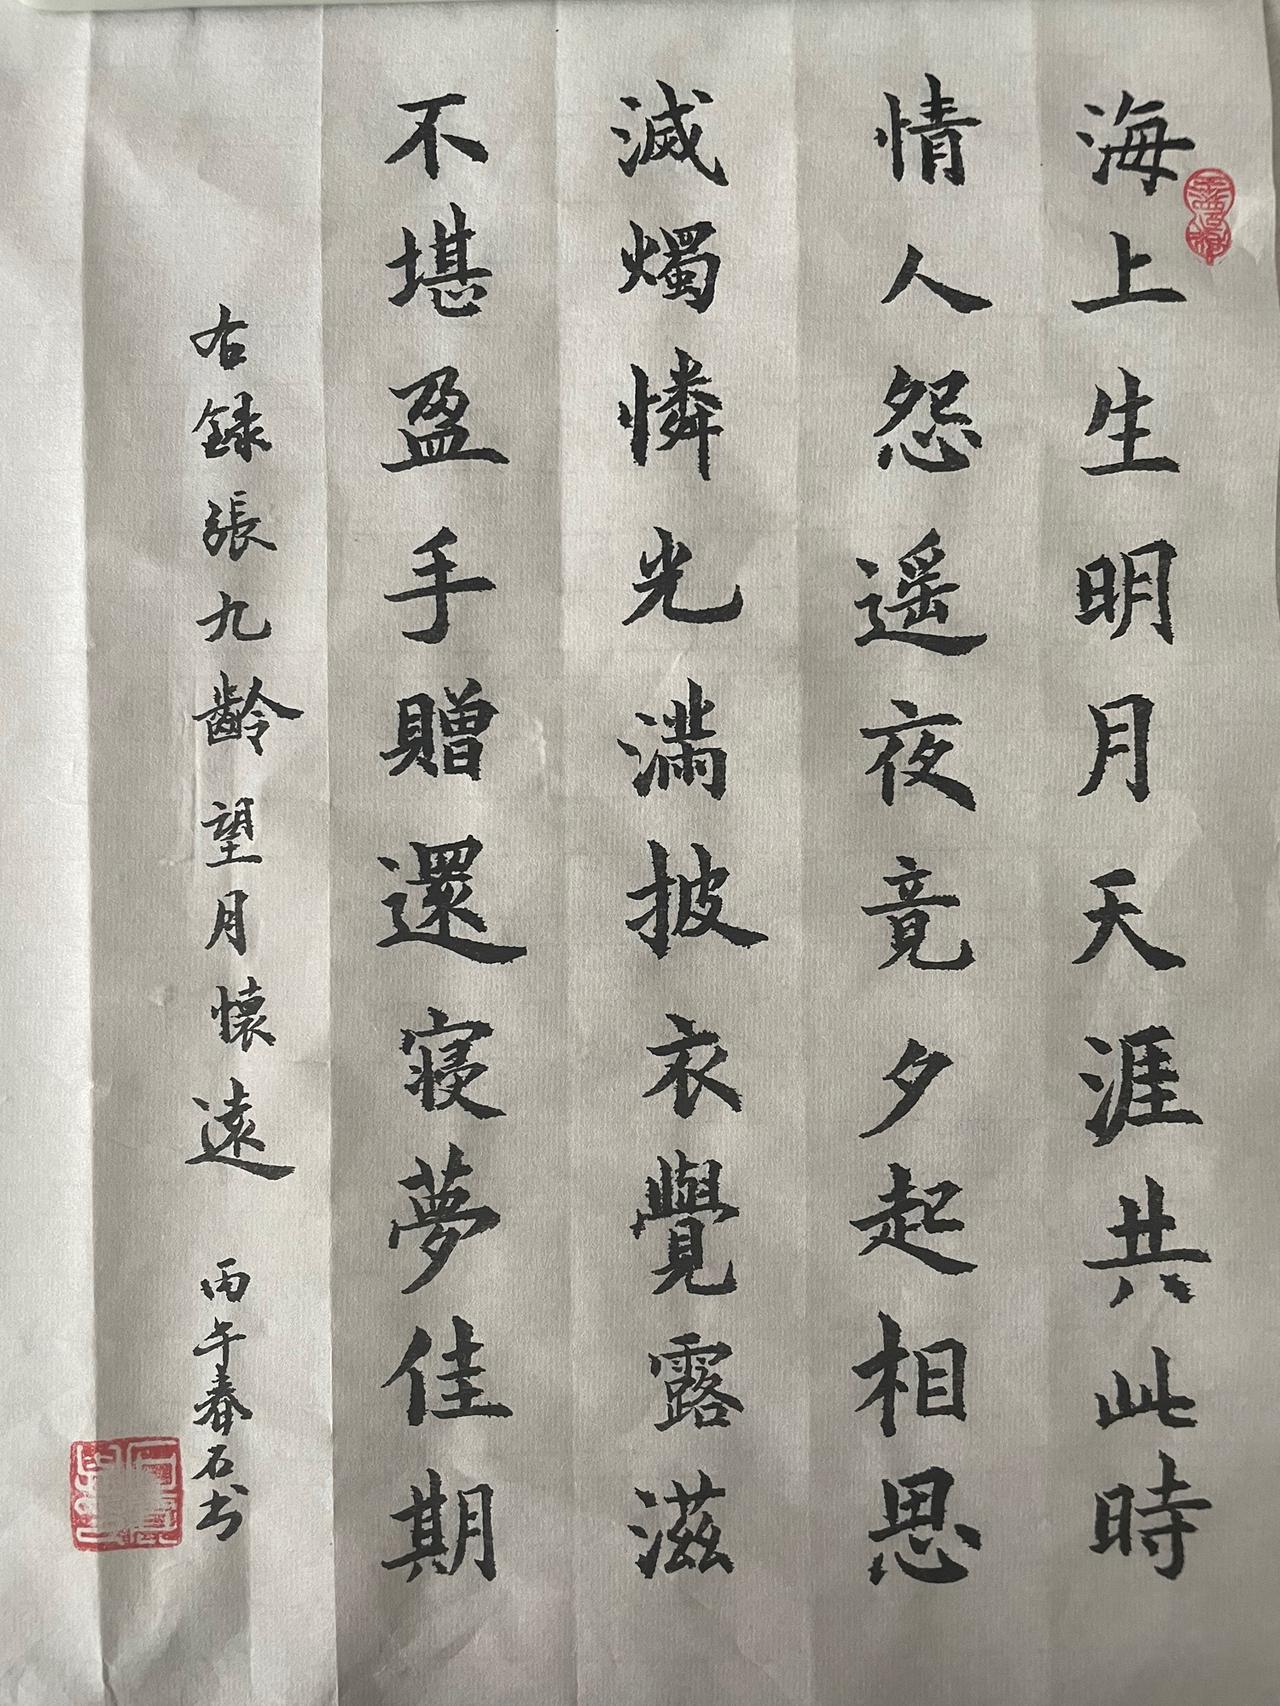 海上生明月天涯共此時
情人怨遥夜竟夕起相思
滅燭憐光滿披衣覺露滋
不堪盈手贈還寝夢佳期
右録張九齡望月懷遠 丙午春石书